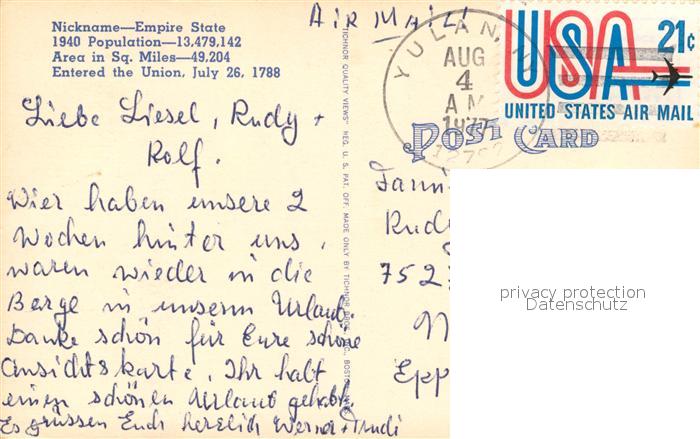 Nickname—Empire State
1940 Population—13,479,142
Area in Sq. Miles—49,204
Entered the Union, July 26, 1788
AIR MAIL
YULAN, N
AUG
4
AM
1977
USA 21c
UNITED STATES AIR MAIL
POST CARD
Liebe Liesel, Rudy +
Rolf.
Wier haben unsere 2
Wochen hinter uns,
waren wieder in die
Berge in unserm Urlaub.
Danke schön für Eure schöne
Ansichtskarte, Ihr habt
einen schönen Urlaub gehabt.
Es grüssen Euch herzlich Werner + Trudi
TICHNOR QUALITY VIEWS" REG. U. S. PAT. OFF. MADE ONLY BY TICHNOR BROS., INC., BOSTON, MASS.
Fami
Rud
752
Epp
privacy protection
Datenschutz